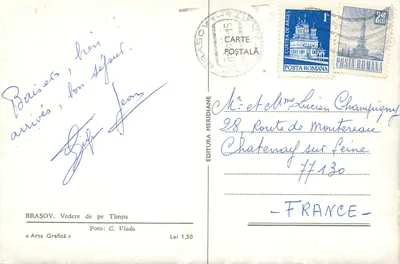 Baisers, bien
arrivés, bon séjour.
Jean
BRAŞOV. Vedere de pe Tîmpa
Foto: C. Vladu
« Arta Grafică »
Lei 1,50
EDITURA MERIDIANE
CARTE
POSTALĂ
CURTEA DE ARGEŞ
1L
POSTA ROMANA
POSTA ROMANA
Mr et Mme Lucien Champigny
28, Route de Montereau
Chatenay sur Seine
77130
- FRANCE -